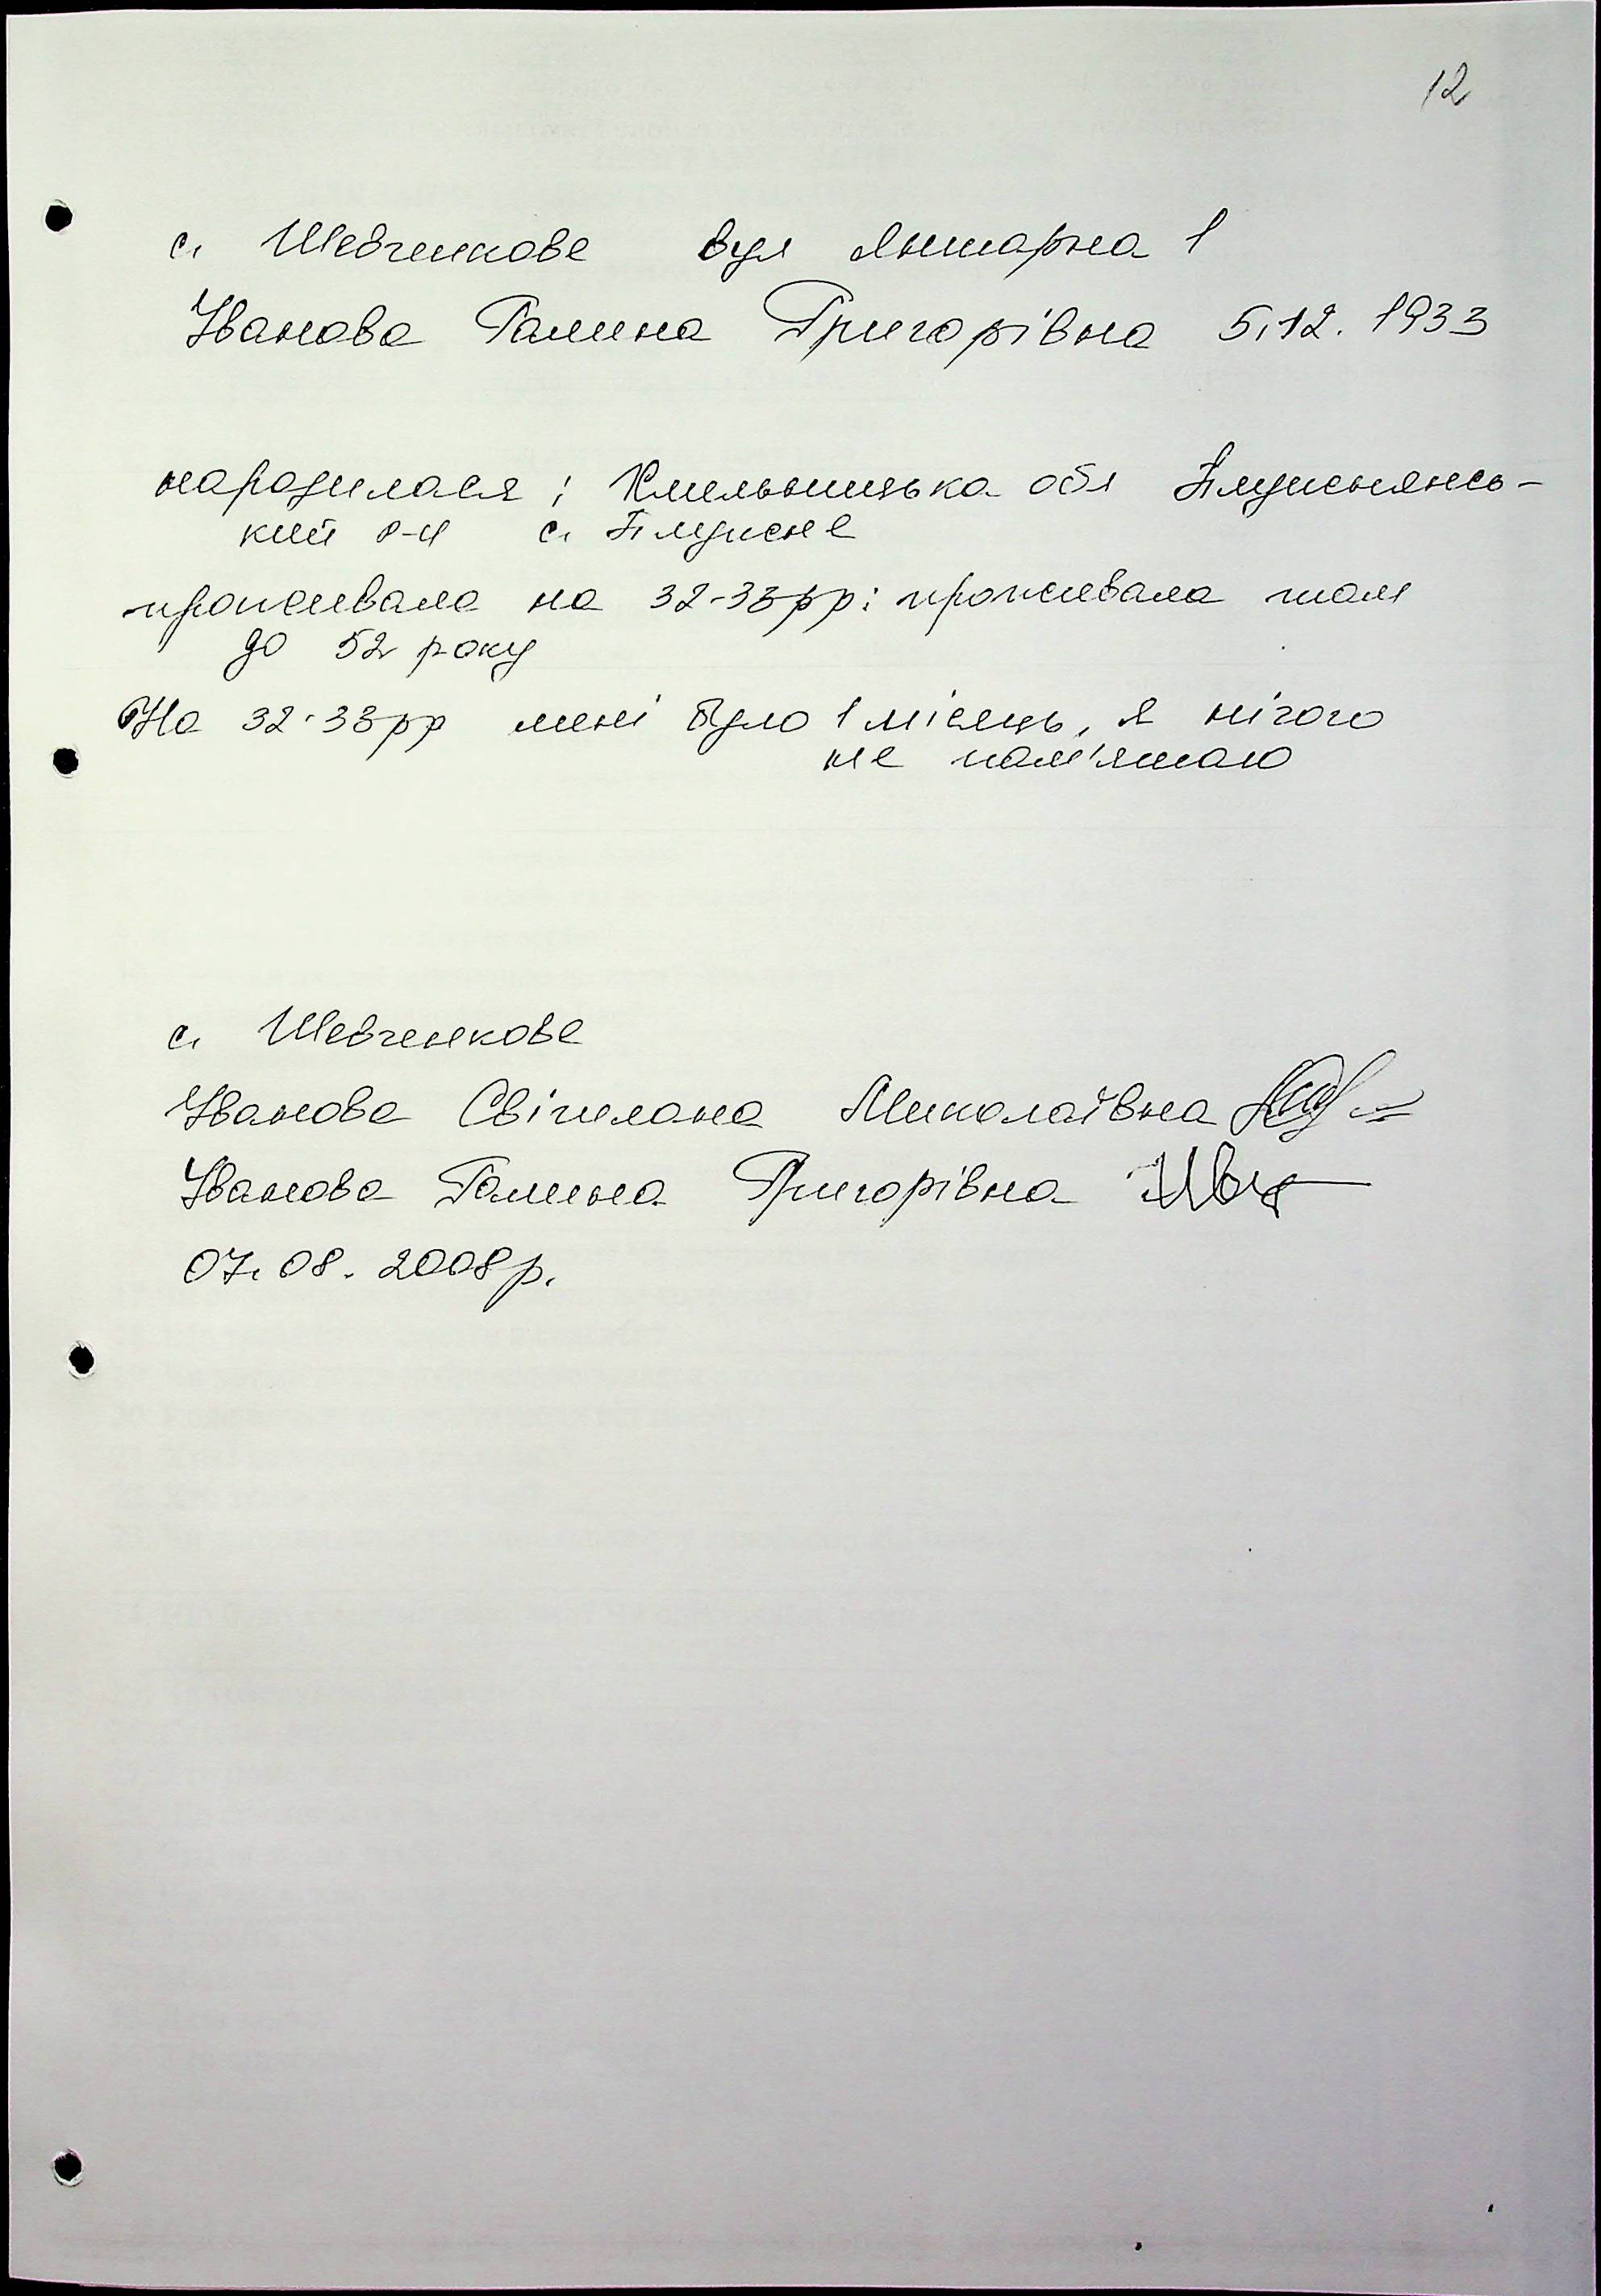 12
с. Шевченкове вул Янтарна 1
Іванова Галина Григорівна 5.12. 1933
народилася: Хмельницька обл Плужнянсь-
кий р-н с. Плужне
проживала на 32-33рр: проживала там
до 52 року
На 32-33рр мені було 1 місяць, я нічого
не пам'ятаю
с. Шевченкове
Іванова Світлана Миколаївна
Іванова Галина Григорівна
07.08.2008р.